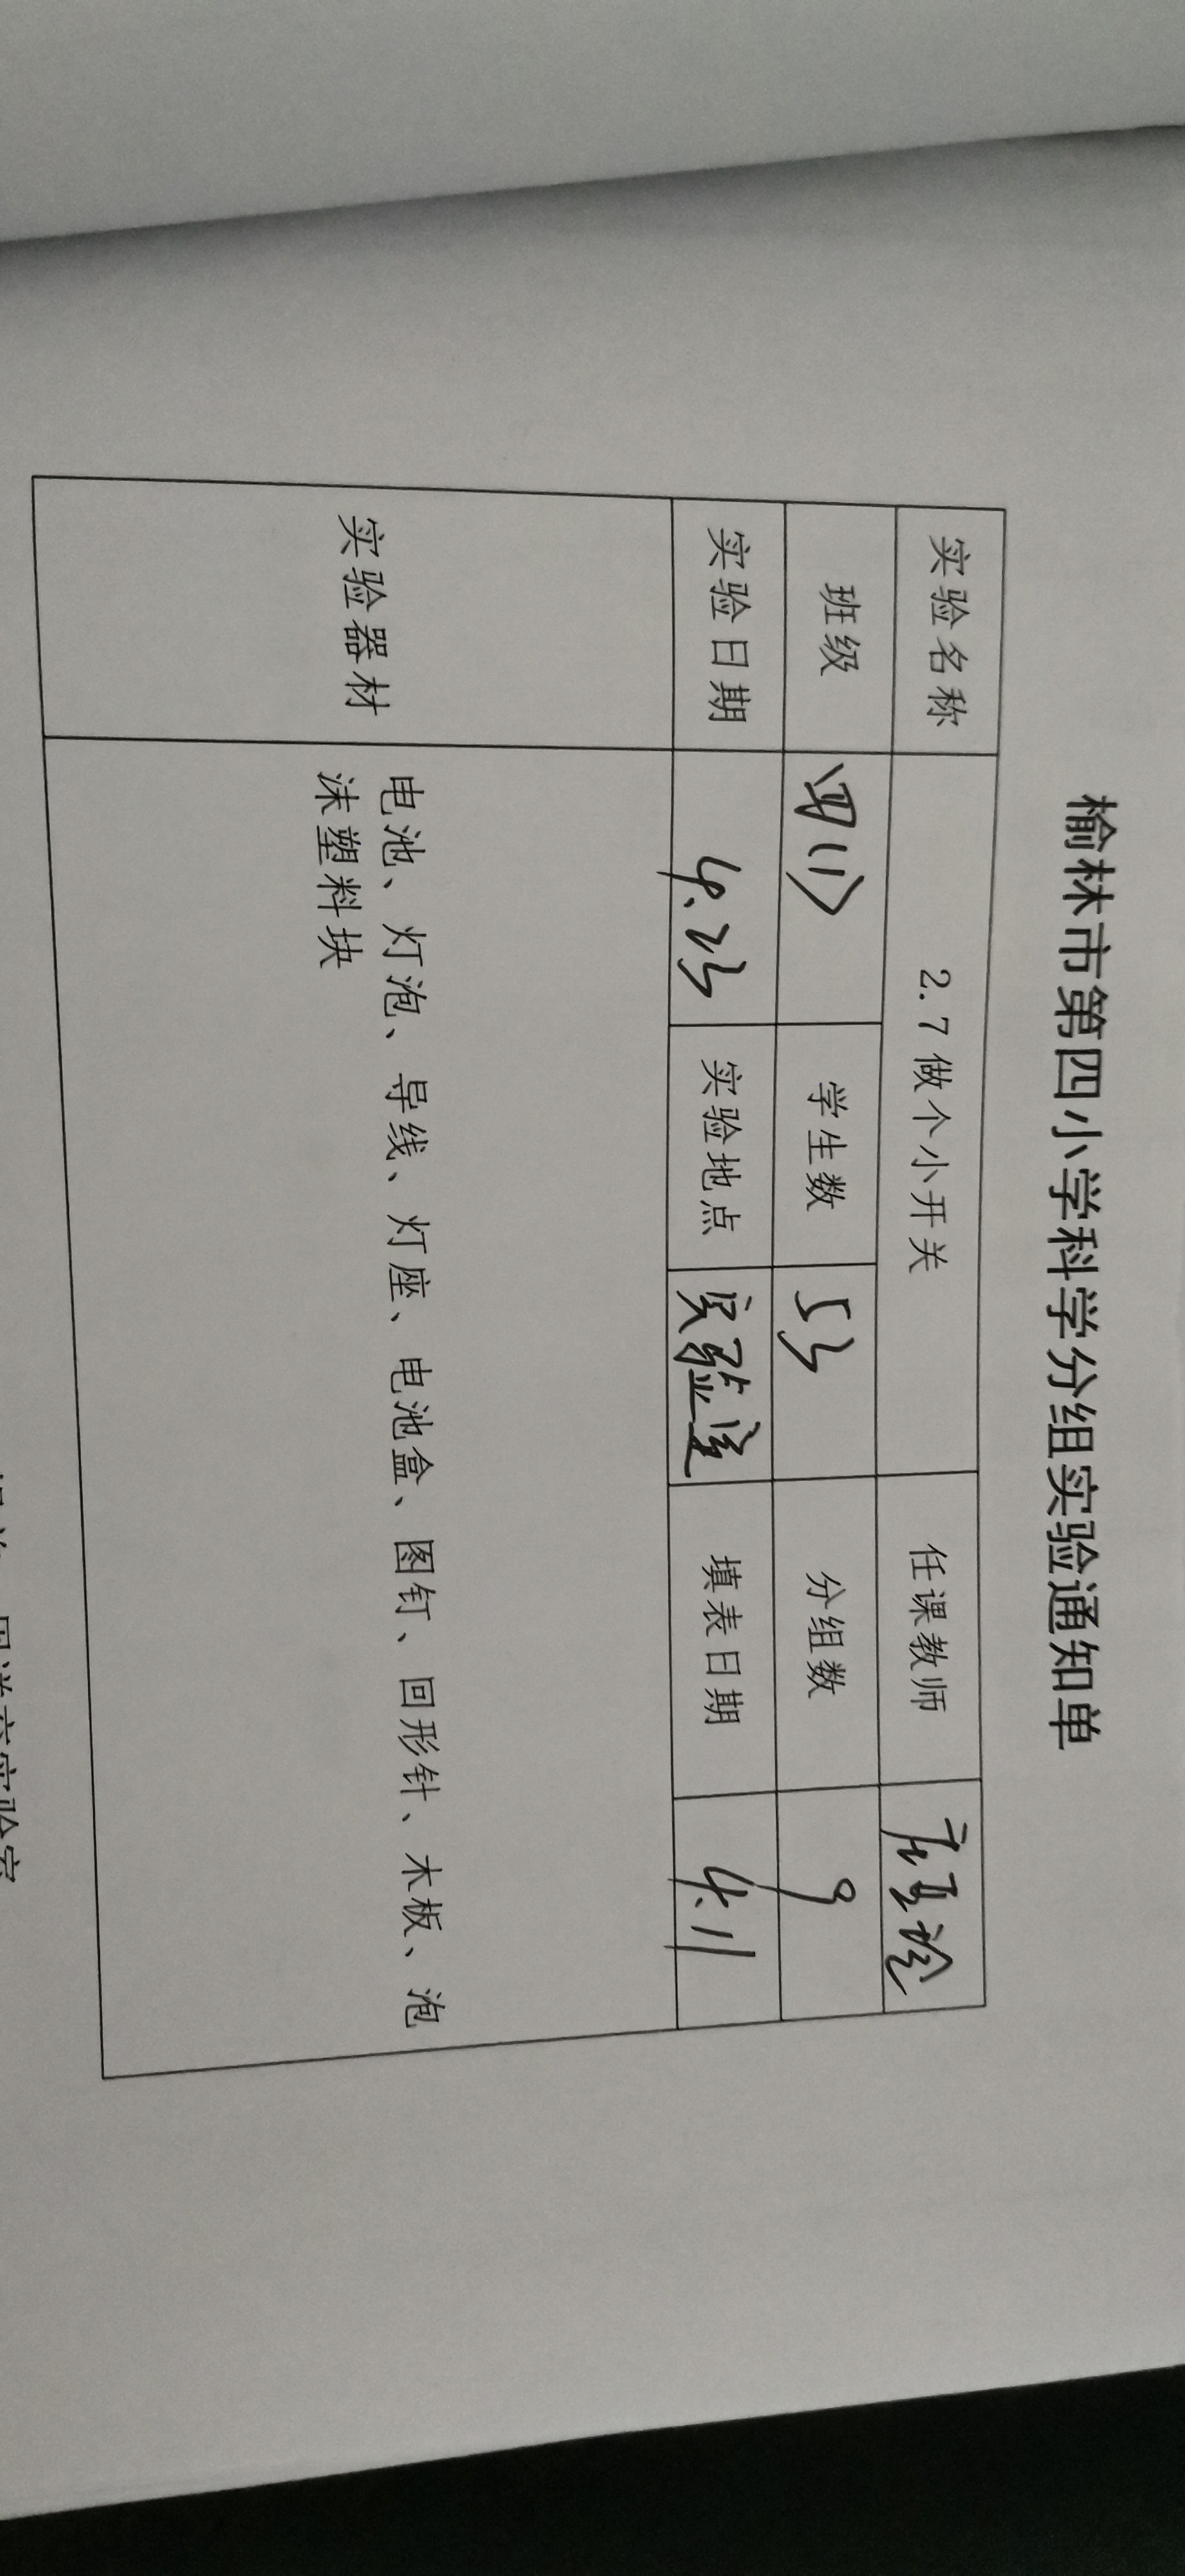 榆林市第四小学科学分组实验通知单
实验名称 2.7做个小开关 任课教师
班级 四(1) 学生数 53 分组数 9
实验日期 4.23 实验地点 实验室 填表日期 4.11
实验器材 电池、灯泡、导线、灯座、电池盒、图钉、回形针、木板、泡
沫塑料块